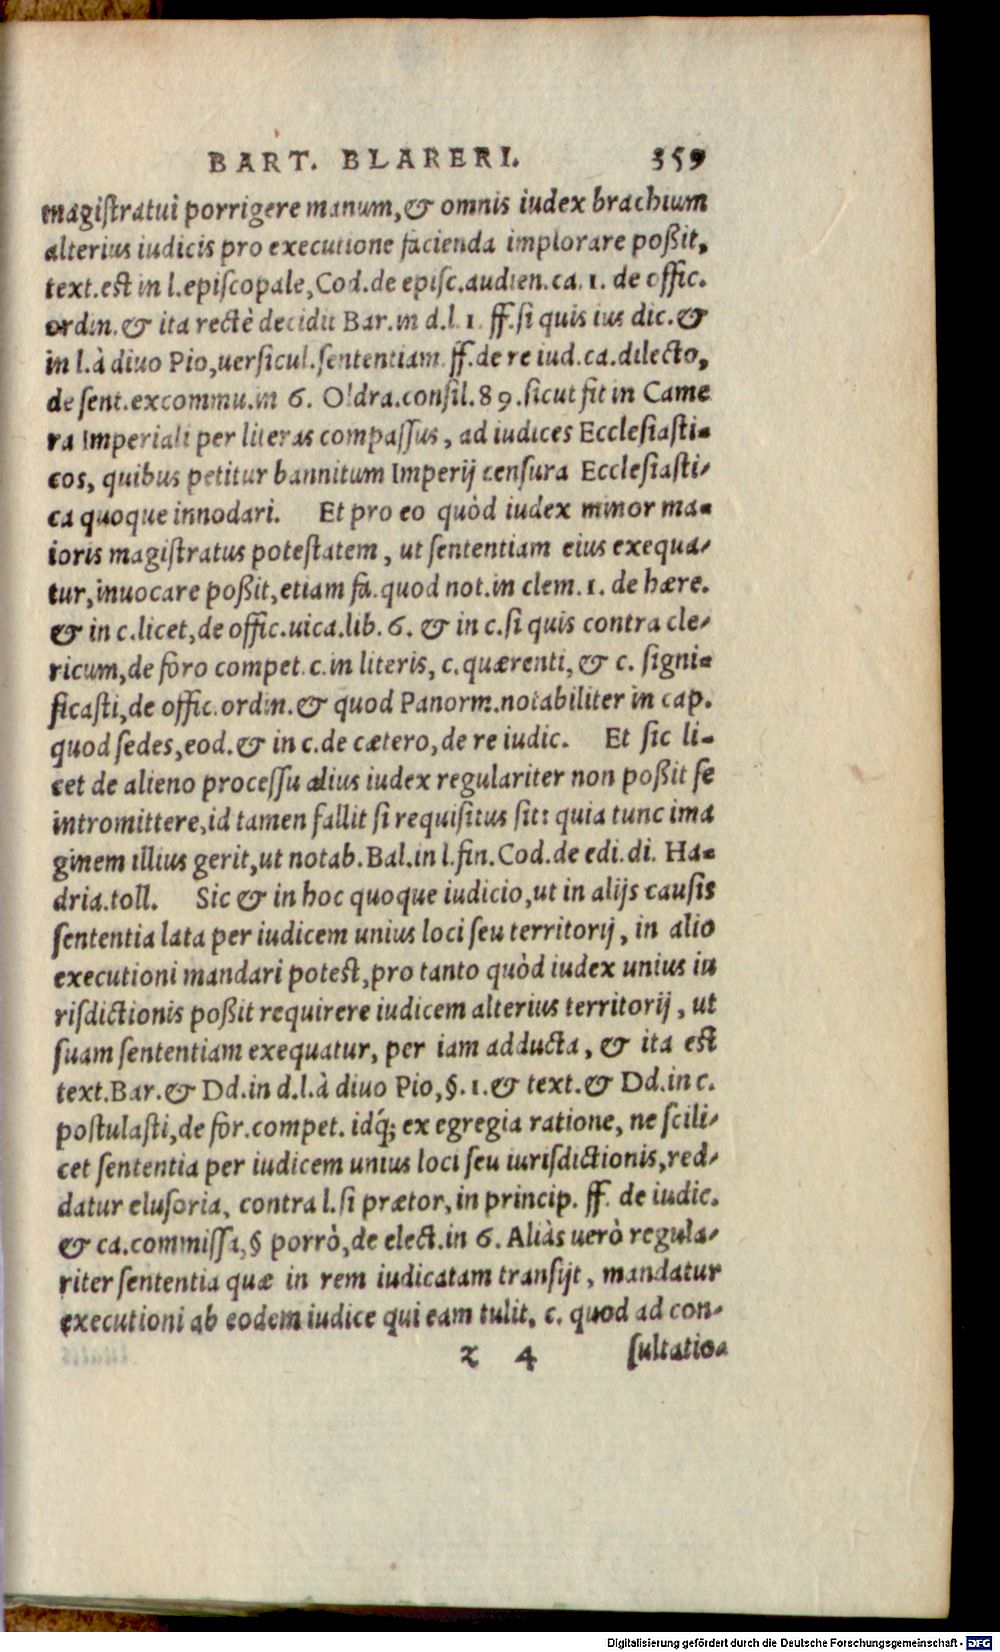 BART. BLARERI. 359
magiſtratui porrigere manum, & omnis iudex brachium
alterius iudicis pro executione facienda implorare poßit,
text.eſt in l.epiſcopale, Cod.de epiſc.audien.ca. 1. de offic.
ordin. & ita rectè decidit Bar.in d.l.1. ff.ſi quis ius dic. &
in l.à diuo Pio, uerſicul.ſententiam. ff.de re iud.ca.dilecto,
de ſent.excommu.in 6. Oldra.conſil.89.ſicut fit in Came
ra Imperiali per literas compaſſus, ad iudices Eccleſiaſti-
cos, quibus petitur bannitum Imperij cenſura Eccleſiaſti-
ca quoque innodari. Et pro eo quòd iudex minor ma-
ioris magiſtratus poteſtatem, ut ſententiam eius exequa-
tur, inuocare poßit, etiam fa.quod not.in clem.1. de hære.
& in c.licet, de offic.uica.lib. 6. & in c.ſi quis contra cle-
ricum, de foro compet.c.in literis, c.quærenti, & c. ſigni-
ficaſti, de offic.ordin. & quod Panorm.notabiliter in cap.
quod ſedes, eod. & in c.de cætero, de re iudic. Et ſic li-
cet de alieno proceſſu alius iudex regulariter non poßit ſe
intromittere, id tamen fallit ſi requiſitus ſit: quia tunc ima
ginem illius gerit, ut notab.Bal.in l.fin.Cod.de edi.di. Ha-
dria.toll. Sic & in hoc quoque iudicio, ut in alijs cauſis
ſententia lata per iudicem unius loci ſeu territorij, in alio
executioni mandari poteſt, pro tanto quòd iudex unius iu
riſdictionis poßit requirere iudicem alterius territorij, ut
ſuam ſententiam exequatur, per iam adducta, & ita eſt
text.Bar. & Dd.in d.l.à diuo Pio, §. 1. & text. & Dd.in c.
poſtulaſti, de for.compet. idq́; ex egregia ratione, ne ſcili-
cet ſententia per iudicem unius loci ſeu iuriſdictionis, red-
datur eluſoria, contra l.ſi prætor, in princip. ff. de iudic.
& ca.commiſſa, § porrò, de elect.in 6. Aliàs uerò regula-
riter ſententia quæ in rem iudicatam tranſijt, mandatur
executioni ab eodem iudice qui eam tulit. c. quod ad con-
z 4 ſultatio-
Digitalisierung gefördert durch die Deutsche Forschungsgemeinschaft - DFG